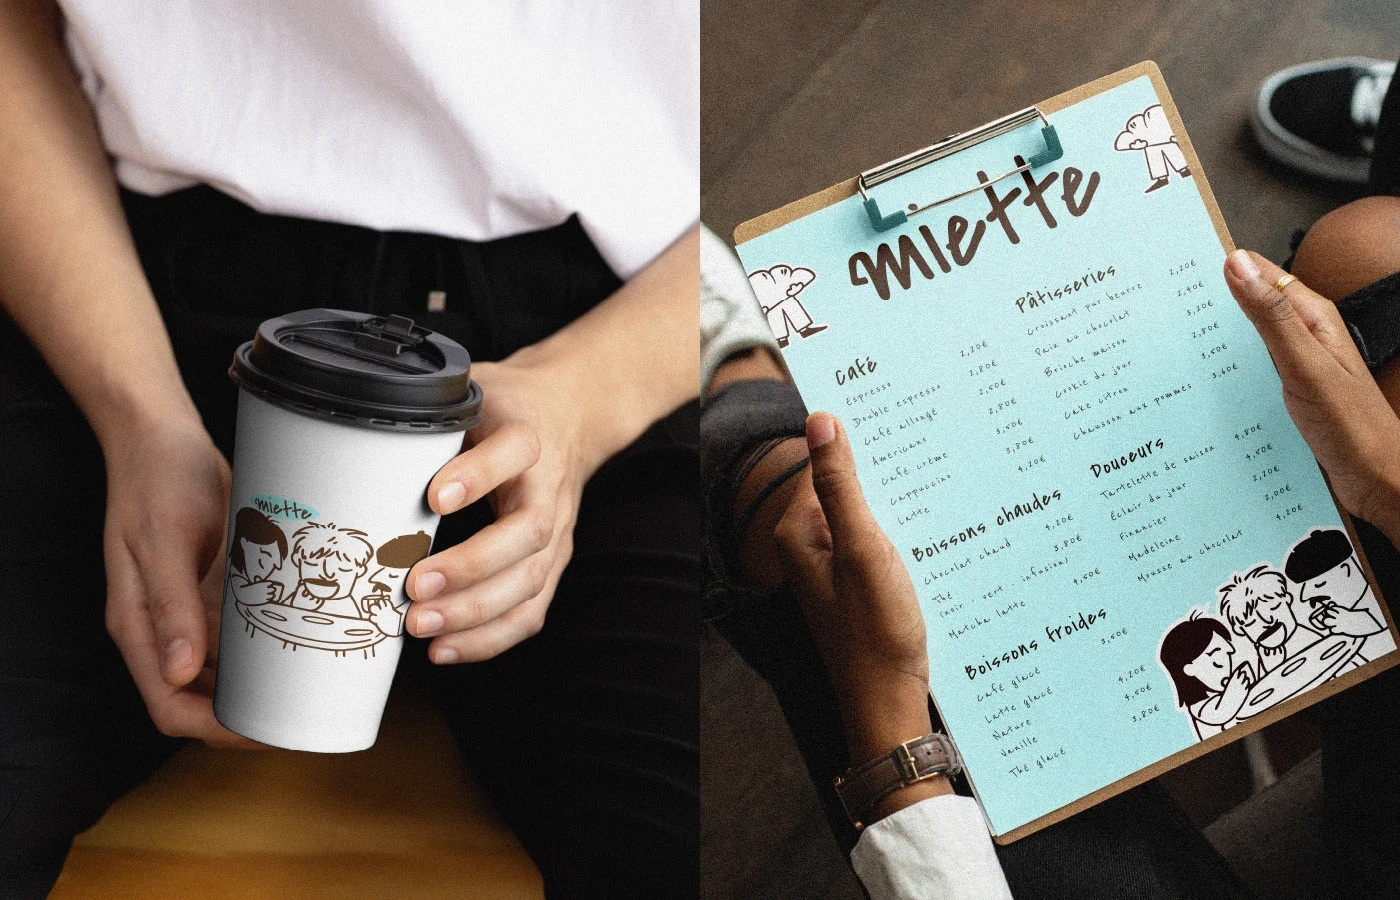 miette
miette
Café
Espresso 2,20€
Double espresso 2,80€
Café allongé 2,50€
Americano 2,80€
Café crème 3,50€
Cappuccino 3,80€
Latte 4,20€
Boissons chaudes
Chocolat chaud 4,20€
Thé 3,80€
(noir, vert, infusion)
Matcha latte 4,50€
Boissons froides
Café glacé 3,50€
Latte glacé
Nature 4,20€
Vanille 4,50€
Thé glacé 3,80€
Pâtisseries
Croissant pur beurre 2,20€
Pain au chocolat 2,40€
Brioche maison 3,20€
Cookie du jour 2,80€
Cake citron 3,50€
Chausson aux pommes 3,60€
Douceurs
Tartelette de saison 4,80€
Éclair du jour 4,50€
Financier 2,20€
Madeleine 2,00€
Mousse au chocolat 4,20€